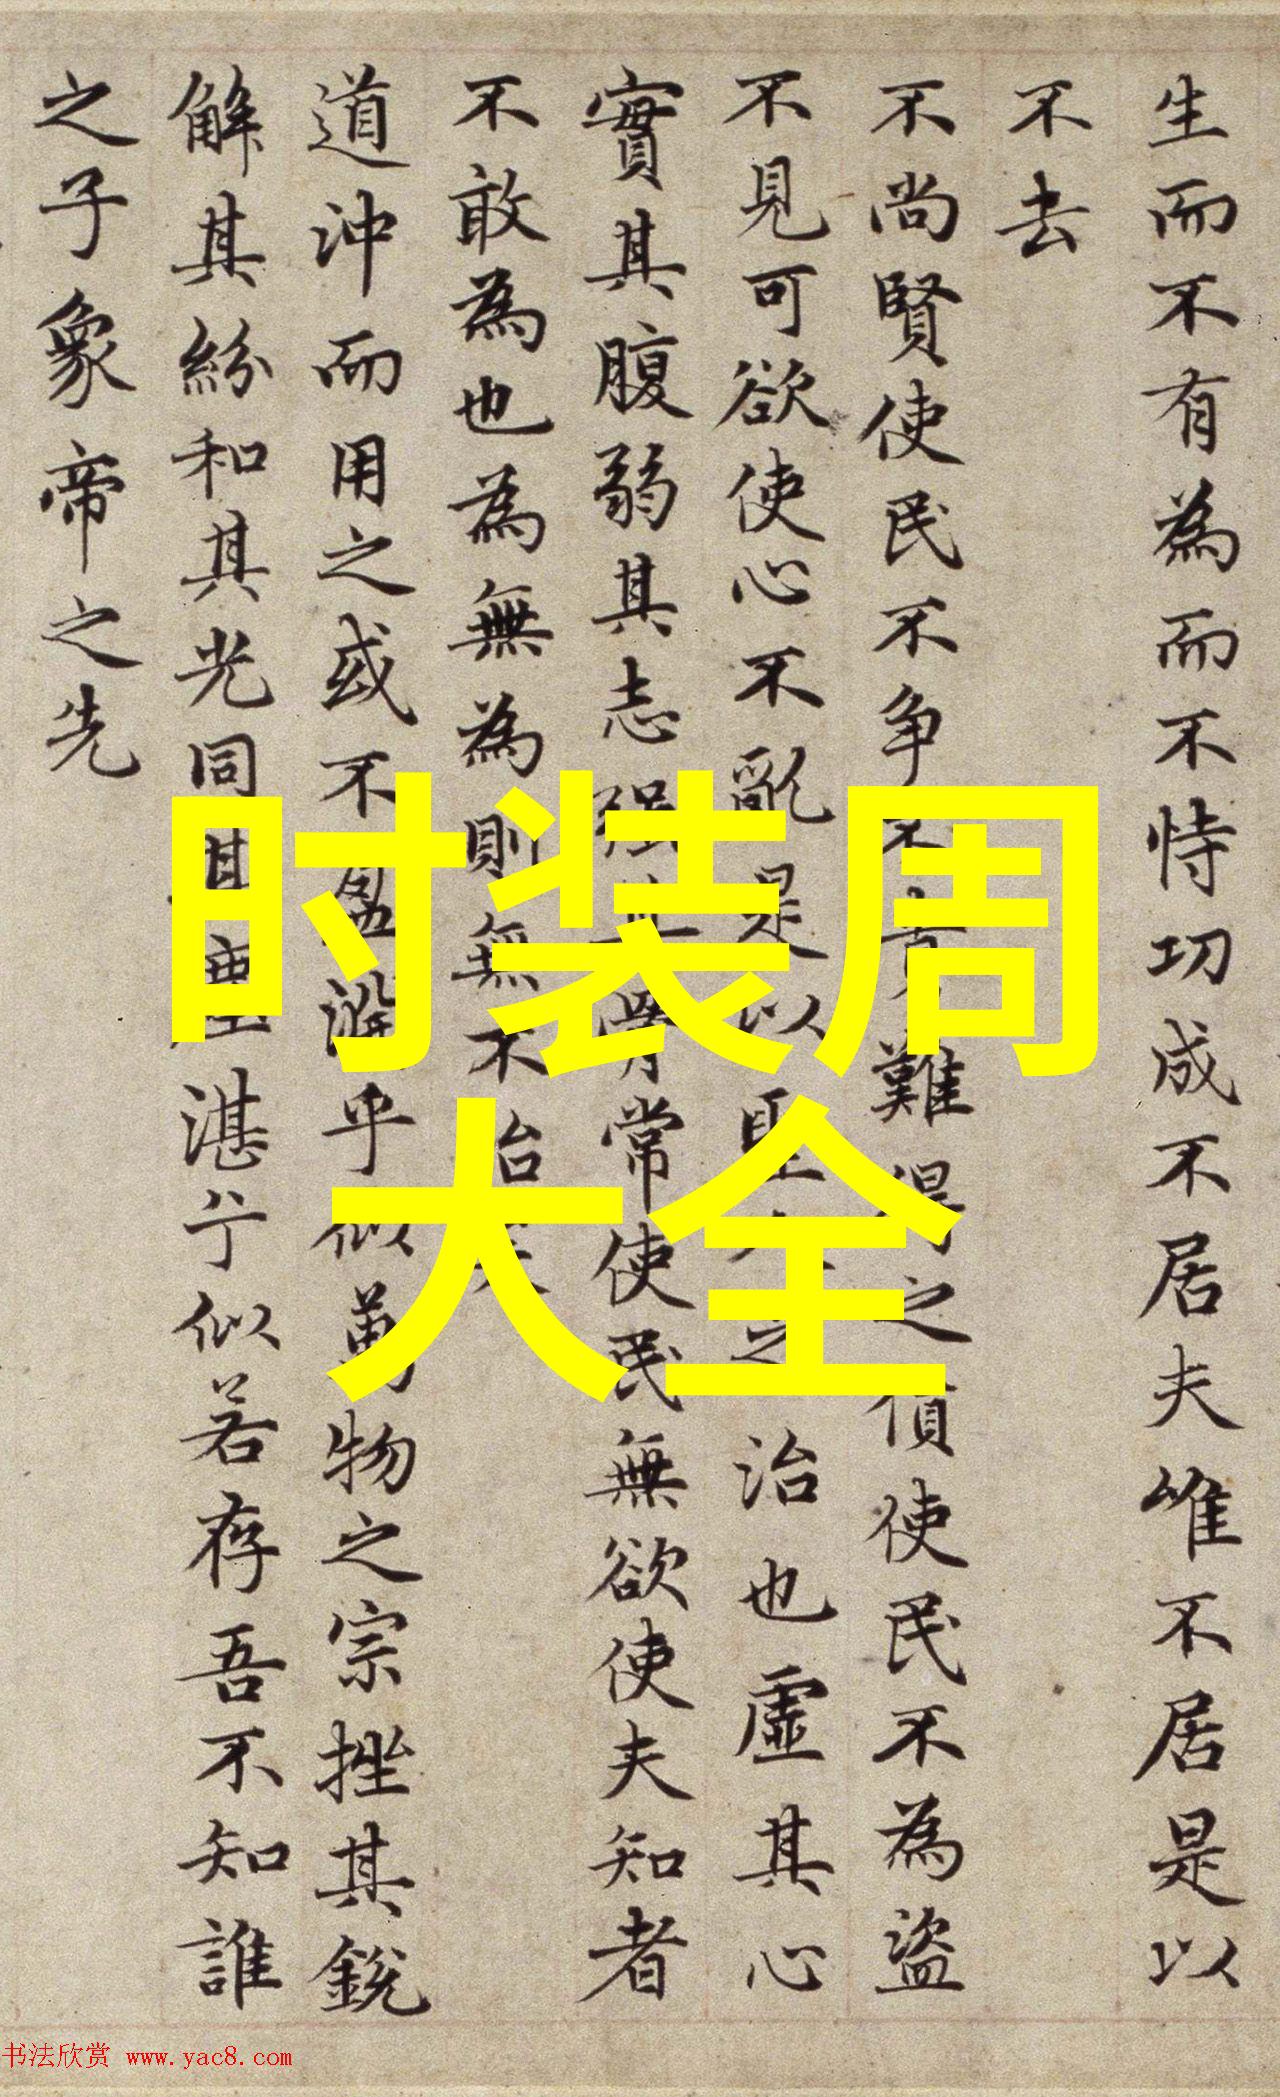 生而不有為而不恃功成不居夫唯不居是以
不去
不尚賢使民不争不貴難得之貨使民不為盜
不見可欲使心不亂是以聖人之治也虛其心
實其腹弱其志强其骨常使民無欲使夫知者
不敢為也為無為則無不治矣
道沖而用之或不盈淵乎似萬物之宗挫其銳
解其紛和其光同其塵湛兮似若存吾不知誰
之子象帝之先
时装周
大全
书法欣赏 www.yac8.com